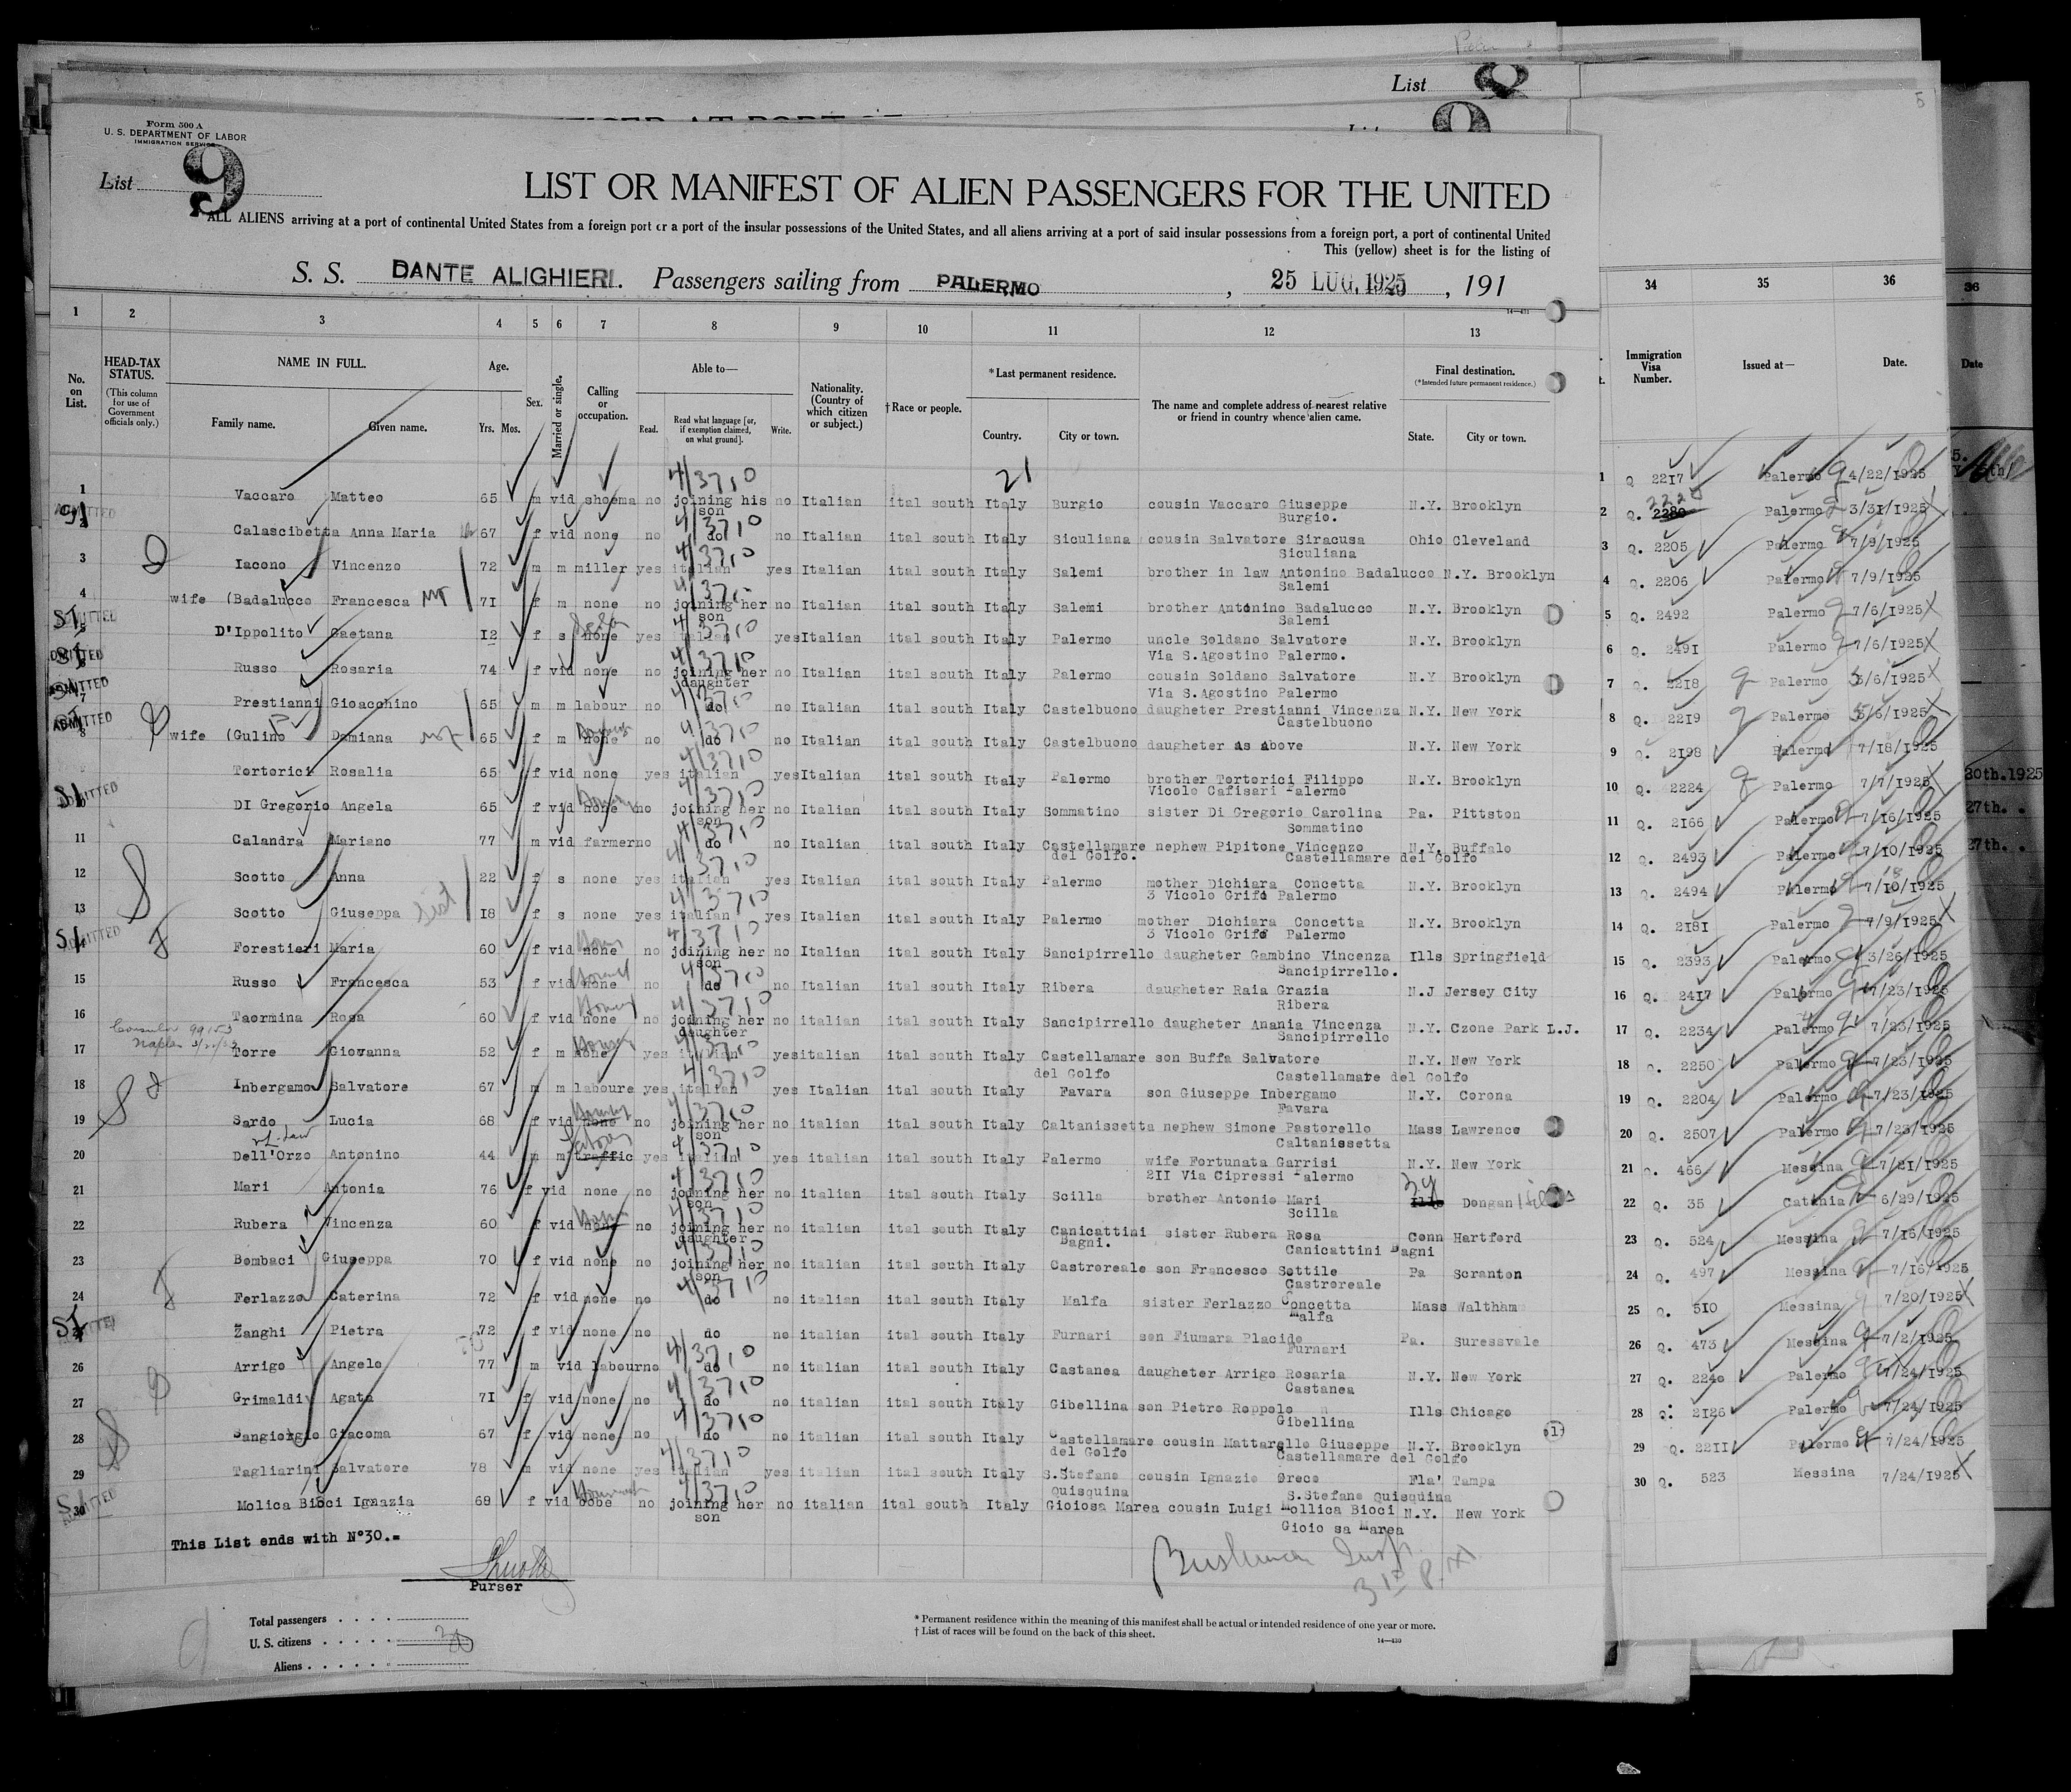 List 8
Form 500 A
U. S. DEPARTMENT OF LABOR
IMMIGRATION SERVICE
List 9
LIST OR MANIFEST OF ALIEN PASSENGERS FOR THE UNITED
ALL ALIENS arriving at a port of continental United States from a foreign port or a port of the insular possessions of the United States, and all aliens arriving at a port of said insular possessions from a foreign port, a port of continental United
This (yellow) sheet is for the listing of
S. S. DANTE ALIGHIERI. Passengers sailing from PALERMO, 25 LUG. 1925, 191
1 2 3 4 5 6 7 8 9 10 11 12 13 34 35 36
No. on List. HEAD-TAX STATUS. (This column for use of Government officials only.) NAME IN FULL. Family name. Given name. Age. Yrs. Mos. Sex. Married or single. Calling or occupation. Able to— Read. Read what language [or, if exemption claimed, on what ground]. Write. Nationality. (Country of which citizen or subject.) †Race or people. *Last permanent residence. Country. City or town. The name and complete address of nearest relative or friend in country whence alien came. Final destination. (*Intended future permanent residence.) State. City or town. Immigration Visa Number. Issued at— Date.
1 Vaccaro Matteo 65 m vid shoema no joining his son no Italian ital south Italy Burgio cousin Vaccaro Giuseppe Burgio. N.Y. Brooklyn 1 Q 2217 Palermo 4/22/1925
2 Calascibetta Anna Maria 67 f vid none no do no Italian ital south Italy Siculiana cousin Salvatore Siracusa Siculiana Ohio Cleveland 2 Q. 2280 Palermo 3/31/1925
3 Iacono Vincenzo 72 m m miller yes italian yes Italian ital south Italy Salemi brother in law Antonino Badalucco Salemi N.Y. Brooklyn 3 Q. 2205 Palermo 7/9/1925
4 wife (Badalucco Francesca 71 f m none no joining her son no Italian ital south Italy Salemi brother Antonino Badalucco Salemi N.Y. Brooklyn 4 Q. 2206 Palermo 7/9/1925
5 D'Ippolito Gaetana 12 f s none yes italian yes Italian ital south Italy Palermo uncle Soldano Salvatore Via S.Agostino Palermo. N.Y. Brooklyn 5 Q. 2492 Palermo 7/6/1925
6 Russo Rosaria 74 f vid none no joining her daughter no Italian ital south Italy Palermo cousin Soldano Salvatore Via S.Agostino Palermo N.Y Brooklyn 6 Q. 2491 Palermo 7/6/1925
7 Prestianni Gioacchino 65 m m labour no do no Italian ital south Italy Castelbuono daugheter Prestianni Vincenza Castelbuono N.Y. New York 7 Q. 2218 Palermo 5/6/1925
8 wife (Gulino Damiana 65 f m none no do no Italian ital south Italy Castelbuono daugheter As Above N.Y. New York 8 Q. 2219 Palermo 5/6/1925
Tortorici Rosalia 65 f vid none yes italian yes Italian ital south Italy Palermo brother Tortorici Filippo Vicolo Cafisari Palermo N.Y. Brooklyn 9 Q. 2198 Palermo 7/18/1925
DI Gregorio Angela 65 f vid none no joining her son no Italian ital south Italy Sommatino sister Di Gregorio Carolina Sommatino Pa. Pittston 10 Q. 2224 Palermo 7/7/1925
11 Calandra Mariano 77 m vid farmer no do no Italian ital south Italy Castellamare del Golfo. nephew Pipitone Vincenzo Castellamare del Golfo N.Y. Buffalo 11 Q. 2166 Palermo 7/16/1925
12 Scotto Anna 22 f s none yes italian yes Italian ital south Italy Palermo mother Dichiara Concetta 3 Vicolo Grifo Palermo N.Y. Brooklyn 12 Q. 2493 Palermo 7/10/1925
13 Scotto Giuseppa 18 f s none yes italian yes Italian ital south Italy Palermo mother Dichiara Concetta 3 Vicolo Grifo Palermo N.Y. Brooklyn 13 Q. 2494 Palermo 7/10/1925
Forestieri Maria 60 f vid none no joining her son no Italian ital south Italy Sancipirrello daugheter Gambino Vincenza Sancipirrello. Ills Springfield 14 Q. 2181 Palermo 7/9/1925
15 Russo Francesca 53 f vid none no do no Italian ital south Italy Ribera daugheter Raia Grazia Ribera N.J Jersey City 15 Q. 2393 Palermo 3/26/1925
16 Taormina Rosa 60 f vid none no joining her daughter no italian ital south Italy Sancipirrello daugheter Anania Vincenza Sancipirrello N.Y. Czone Park L.J. 16 Q. 2417 Palermo 7/23/1925
17 Torre Giovanna 52 f m none yes italian yes italian ital south Italy Castellamare del Golfo son Buffa Salvatore Castellamare del Golfo N.Y. New York 17 Q. 2234 Palermo 7/23/1925
18 Inbergamo Salvatore 67 m m laboure yes italian yes Italian ital south Italy Favara son Giuseppe Inbergamo Favara N.Y. Corona 18 Q. 2250 Palermo 7/23/1925
19 Sardo Lucia 68 f vid none no joining her son no italian ital south Italy Caltanissetta nephew Simone Pastorello Caltanissetta Mass Lawrence 19 Q. 2204 Palermo 7/23/1925
20 Dell'Orzo Antonino 44 m m traffic yes italian yes italian ital south Italy Palermo wife Fortunata Garrisi 211 Via Cipressi Palermo N.Y. New York 20 Q. 2507 Palermo 7/23/1925
21 Mari Antonia 76 f vid none no joining her son no italian ital south Italy Scilla brother Antonio Mari Scilla Dongan Hills 21 Q. 466 Messina 7/21/1925
22 Rubera Vincenza 60 f vid none no joining her daughter no italian ital south Italy Canicattini Bagni. sister Rubera Rosa Canicattini Bagni Conn Hartford 22 Q. 35 Catania 6/29/1925
23 Bombaci Giuseppa 70 f vid none no joining her son no italian ital south Italy Castroreale son Francesco Sottile Castroreale Pa Scranton 23 Q. 524 Messina 7/16/1925
24 Ferlazzo Caterina 72 f vid none no do no italian ital south Italy Malfa sister Ferlazzo Concetta Malfa Mass Waltham 24 Q. 497 Messina 7/16/1925
Zanghi Pietra 72 f vid none no do no italian ital south Italy Furnari son Fiumara Placido Furnari Pa. Suressvale 25 Q. 510 Messina 7/20/1925
26 Arrigo Angelo 77 m vid labour no do no italian ital south Italy Castanea daugheter Arrigo Rosaria Castanea N.Y. New York 26 Q. 473 Messina 7/2/1925
27 Grimaldi Agata 71 f vid none no do no italian ital south Italy Gibellina son Pietro Roppolo Gibellina Ills Chicago 27 Q. 2240 Palermo 7/24/1925
28 Sangiorgio Giacoma 67 f vid none no do no italian ital south Italy Castellamare del Golfo cousin Mattarello Giuseppe Castellamare del Golfo N.Y. Brooklyn 28 Q. 2126 Palermo 7/24/1925
29 Tagliarini Salvatore 78 m vid none yes italian yes italian ital south Italy S.Stefano Quisquina cousin Ignazio Greco S.Stefano Quisquina Fla' Tampa 29 Q. 2211 Palermo 7/24/1925
30 Molica Bioci Ignazia 69 f vid bobe no joining her son no italian ital south Italy Gioiosa Marea cousin Luigi Mollica Bioci Gioio sa Marea N.Y. New York 30 Q. 523 Messina 7/24/1925
This List ends with N°30.=
Purser
Total passengers
U. S. citizens
Aliens
* Permanent residence within the meaning of this manifest shall be actual or intended residence of one year or more.
† List of races will be found on the back of this sheet.
14—430